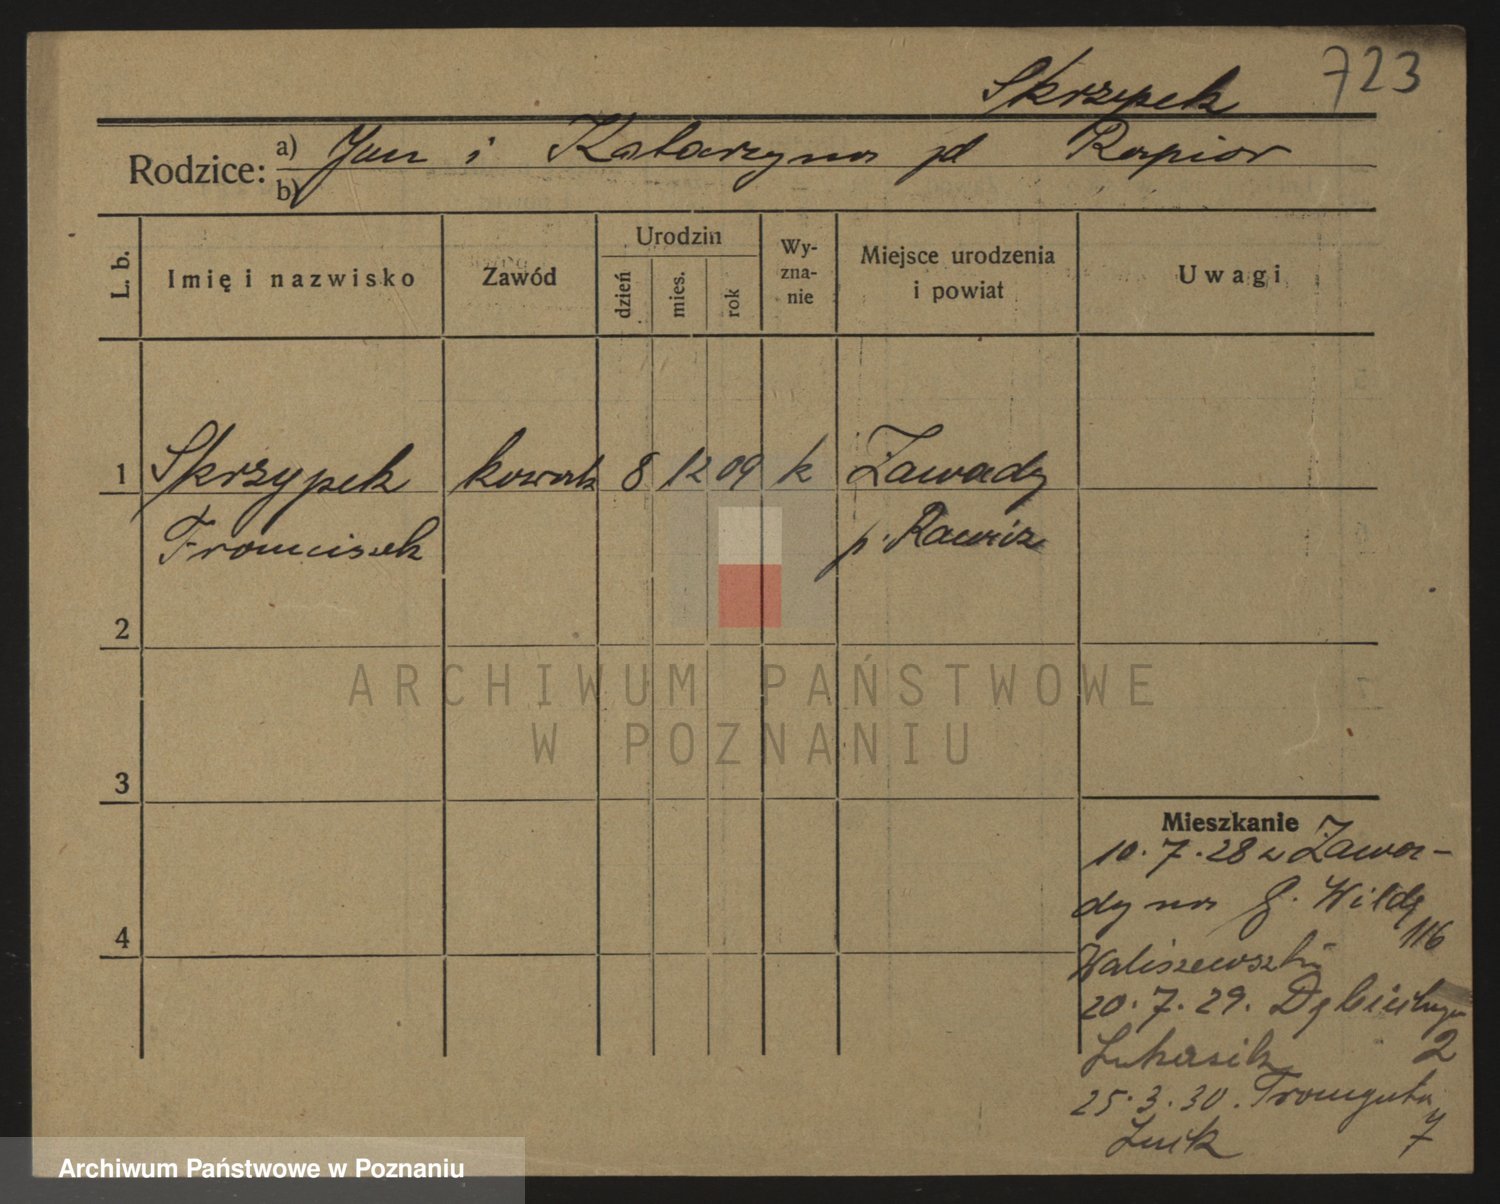 723
Skrzypek
Rodzice: a) Jan i Katarzyna zd Rapior
b)
L. b.
Imię i nazwisko
Zawód
Urodzin
dzień
mies.
rok
Wy-
zna-
nie
Miejsce urodzenia
i powiat
Uwagi
1 Skrzypek kowal 8 12 09 k Zawady
Franciszek p. Rawicz
2
3
4
Mieszkanie
10.7.28 z Zawa-
dy na G. Wildę
116
Waliszewski
20.7.29.
2
Łukasik
25.3.30. Traugutta
7
ARCHIWUM PAŃSTWOWE
W POZNANIU
Archiwum Państwowe w Poznaniu